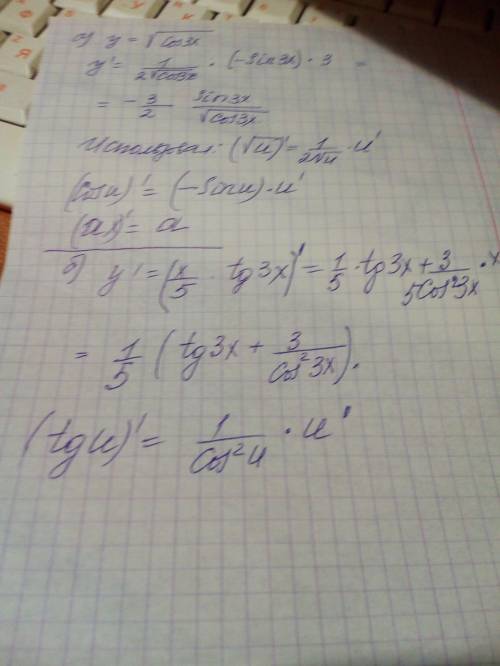 а) y = √cos3x
y' = 1/(2√cos3x) · (-sin3x) · 3 =
= - 3/2 sin3x/√cos3x
Использовал: (√u)' = 1/(2√u) · u'
(cosu)' = (-sinu) · u'
(ax)' = a
б) y' = (x/5 · tg3x)' = 1/5 · tg3x + 3/(5cos²3x) · x
= 1/5 (tg3x + 3/cos²3x).
(tgu)' = 1/cos²u · u'